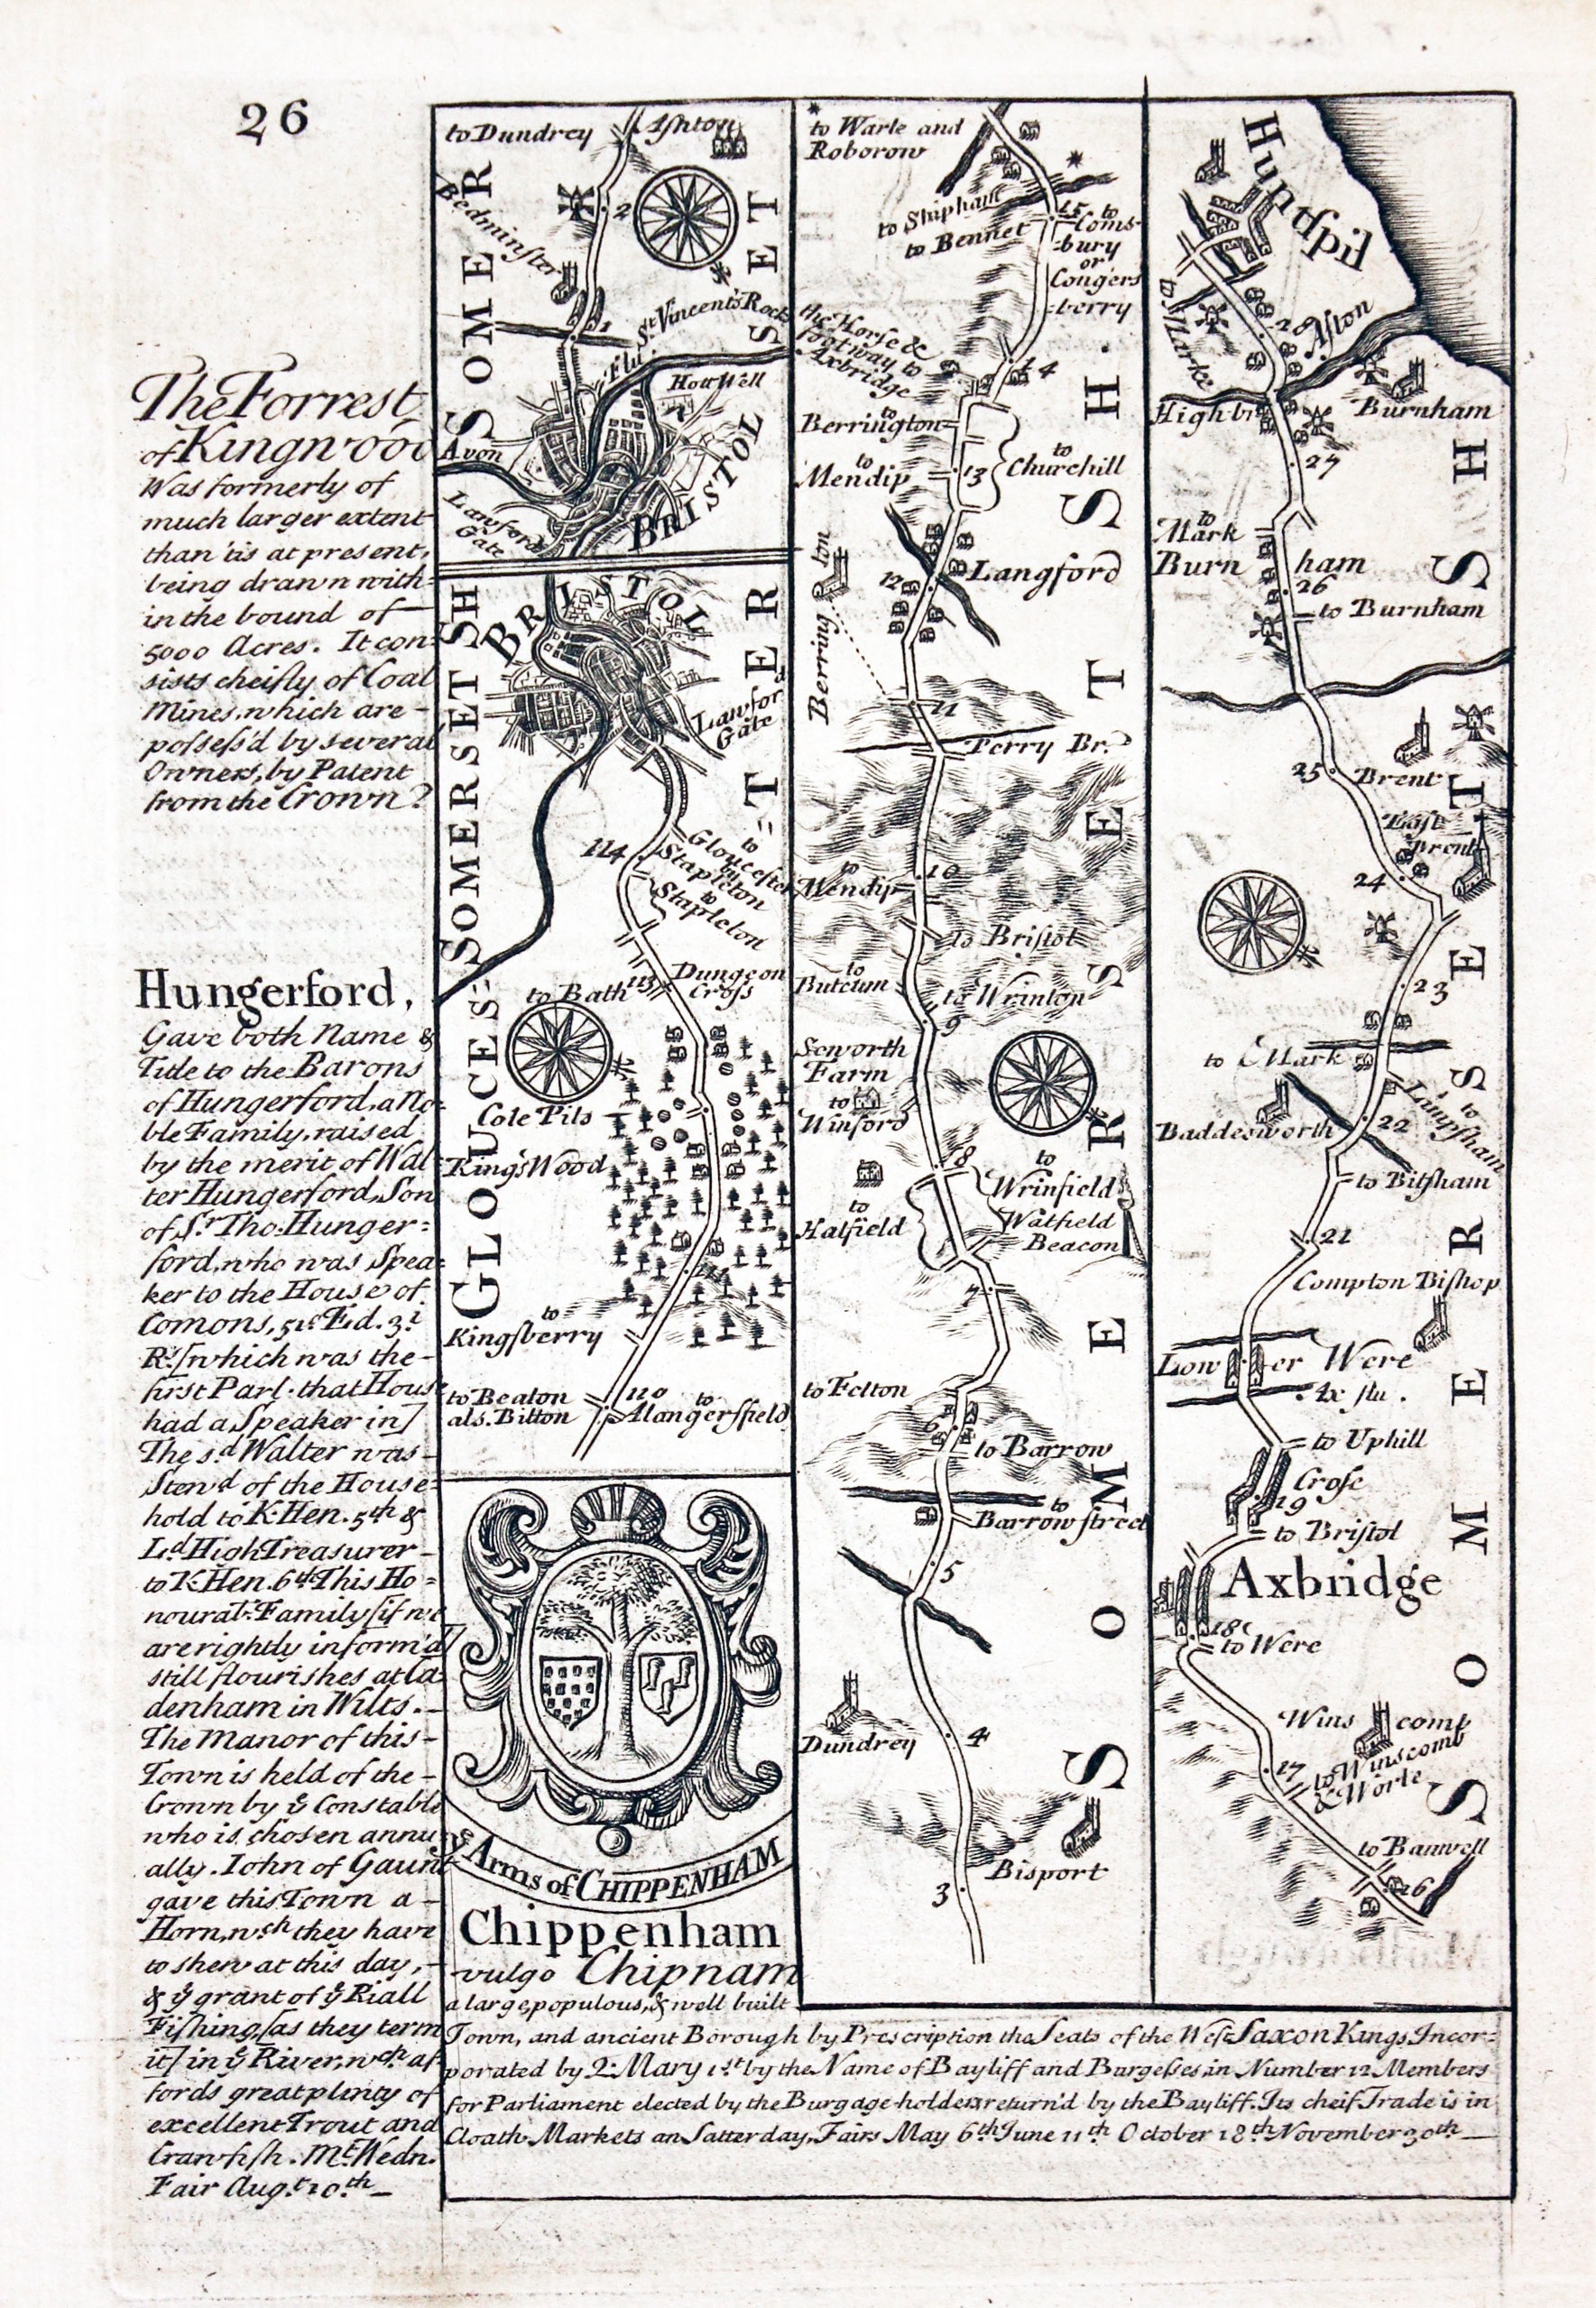 26
The Forrest
of Kingwood
Was formerly of
much larger extent
than 'tis at present,
being drawn with=
in the bound of
5000 Acres. It con=
sists cheifly of Coal
Mines, which are
possess'd by several
Owners, by Patent
from the Crown
Hungerford,
Gave both Name &
Title to the Barons
of Hungerford, a No=
ble Family, raised
by the merit of Wal=
ter Hungerford, Son
of Sr. Tho: Hunger=
ford, who was Spea=
ker to the House of
Comons, 51st Ed. 3d
R. [which was the
first Parl. that House
had a Speaker in]
The sd. Walter was
Stewd of the House=
hold to K. Hen. 5th &
Ld. High Treasurer
to K. Hen. 6th This Ho=
nourabl. Family [if we
are rightly inform'd]
still flourishes at Ca=
denham in Wilts.
The Manor of this
Town is held of the
Crown by ye Constable
who is chosen annu=
ally. Iohn of Gaunt
gave this Town a
Horn, wch they have
to shew at this day,
& ye grant of ye Riall
Fishing, [as they term
it] in ye River, wch af=
fords great plenty of
excellent Trout and
Crawfish. Mt. Wedn.
Fair Augt. 10th
to Dundrey
Ashton
Bedminster
2
SOMER
SET
1
St Vincent's Rock
Flu.
Hott Well
Avon
BRISTOL
Lawfords Gate
BRISTOL
SOMERSET SH
Lawfords Gate
TER
114
to Gloucester by Stapleton
to Stapleton
113
Dungeon Cross
to Bath
GLOUCES=
Cole Pits
Kings Wood
111
to Kingsberry
to Beaton
als. Bitton
110
to Mangersfield
ye Arms of CHIPPENHAM
Chippenham
vulgo Chipnam
a large, populous, & well built
Town, and ancient Borough by Prescription the Seats of the West Saxon Kings, Incor=
porated by Q: Mary 1st by the Name of Bayliff and Burgesses in Number 12 Members
for Parliament elected by the Burgage holders & return'd by the Bayliff. Its cheif Trade is in
Cloath Markets on Satterday, Fairs May 6th June 11th October 18th November 30th
to Warle and
Roborow
to Shipham
to Bennet
15
to Coms=
bury
or
Congers
=berry
the Horse &
footway to
Axbridge
14
to Berrington
to Mendip
13
to Churchill
12
Langford
Berring ton
11
Perry Br.
to Mendip
10
to Bristol
to Butcum
to Wrinton
9
Seworth
Farm
to Winford
8
to Wrinfield
Watfield
Beacon
to Hatfield
7
to Felton
6
to Barrow
to Barrow street
5
Dundrey
4
Bisport
3
SOMERSETSH.
Huntspil
to Marke
28
Aston
High bri
Burnham
27
to Mark
Burn ham
26
to Burnham
25
Brent
East Brent
24
23
to Mark
to Lampsham
Baddesworth
22
to Bitsham
21
Compton Bishop
Low er Were
Ax flu.
to Uphill
Crose
19
to Bristol
Axbridge
18
to Were
Wins comb
17
to Winscomb
& Worle
to Banwell
16
SOMERSETSH